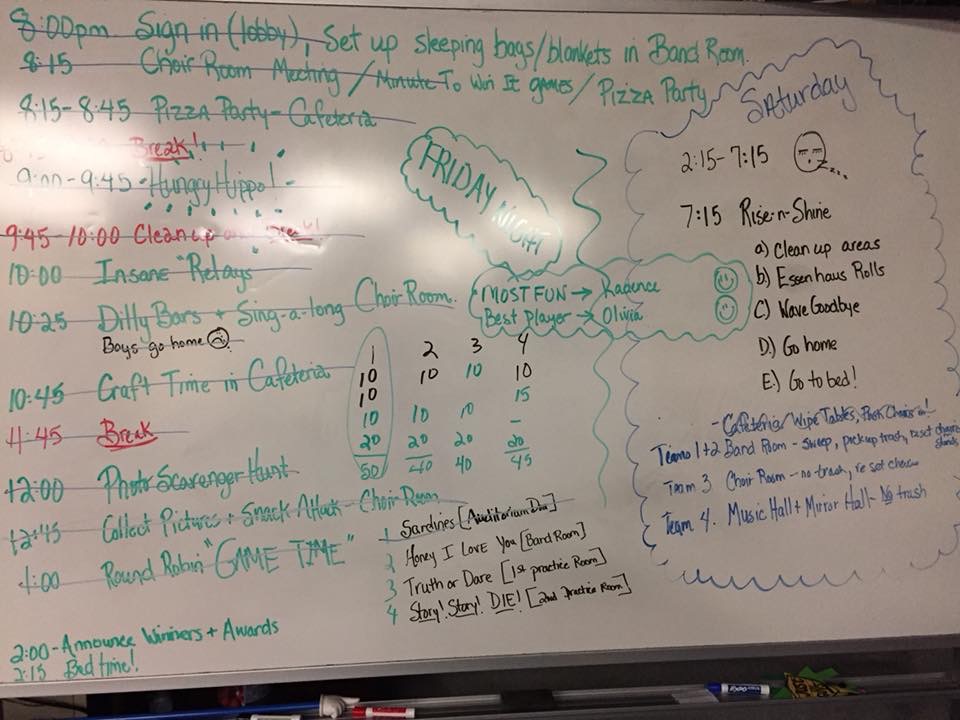 8:00pm Sign in (lobby), Set up sleeping bags/blankets in Band Room.
8:15 Choir Room Meeting / Minute To Win It games / Pizza Party
8:15-8:45 Pizza Party - Cafeteria
Break!
9:00-9:45 - Hungry Hippo! -
9:45-10:00 Clean up
10:00 Insane "Relays"
10:25 Dilly Bars + Sing-a-long Choir Room.
Boys go home
10:45 Craft Time in Cafeteria
11:45 Break
12:00 Photo Scavenger Hunt
12:45 Collect Pictures + Snack Attack - Choir Room
1:00 Round Robin "GAME TIME"
2:00 - Announce Winners + Awards
2:15 Bed time!
FRIDAY NIGHT
MOST FUN → Kadence
Best Player → Olivia
1 2 3 4
10 10 10 10
10 15
10 10 10 -
20 20 20 20
50 40 40 45
1 Sardines [Auditorium]
2 Honey I Love You [Band Room]
3 Truth or Dare [1st practice Room]
4 Story! Story! DIE! [2nd Practice Room]
Saturday
2:15-7:15 zz...
7:15 Rise-n-Shine
a) Clean up areas
b) Essenhaus Rolls
c) Wave Goodbye
D.) Go home
E.) Go to bed!
- Cafeteria/Wipe Tables, Push Chairs in!
Teams 1+2 Band Room - sweep, pick up trash, reset chairs stands
Team 3 Choir Room - no trash, re set chairs
Team 4. Music Hall + Mirror Hall - No trash
EXPO
EXPO